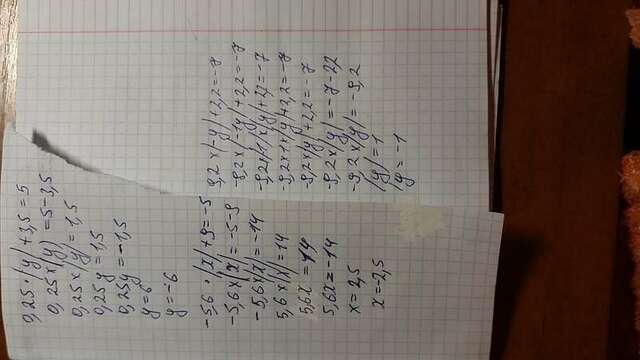 0,25·|y|+3,5=5
0,25×|y|=5-3,5
0,25×|y|=1,5
0,25y=1,5
0,25y=-1,5
y=6
y=-6
-5,6·|x|+9=-5
-5,6×|x|=-5-9
-5,6×|x|=-14
5,6×|x|=14
5,6x=14
5,6x=-14
x=2,5
x=-2,5
9,2×|-y|+2,2=-7
-9,2×|-1y|+2,2=-7
-9,2×1×|y|+2,2=-7
-9,2×|y|+2,2=-7
-9,2×|y|=-7-2,2
-9,2×|y|=-9,2
|y|=1
|y=-1